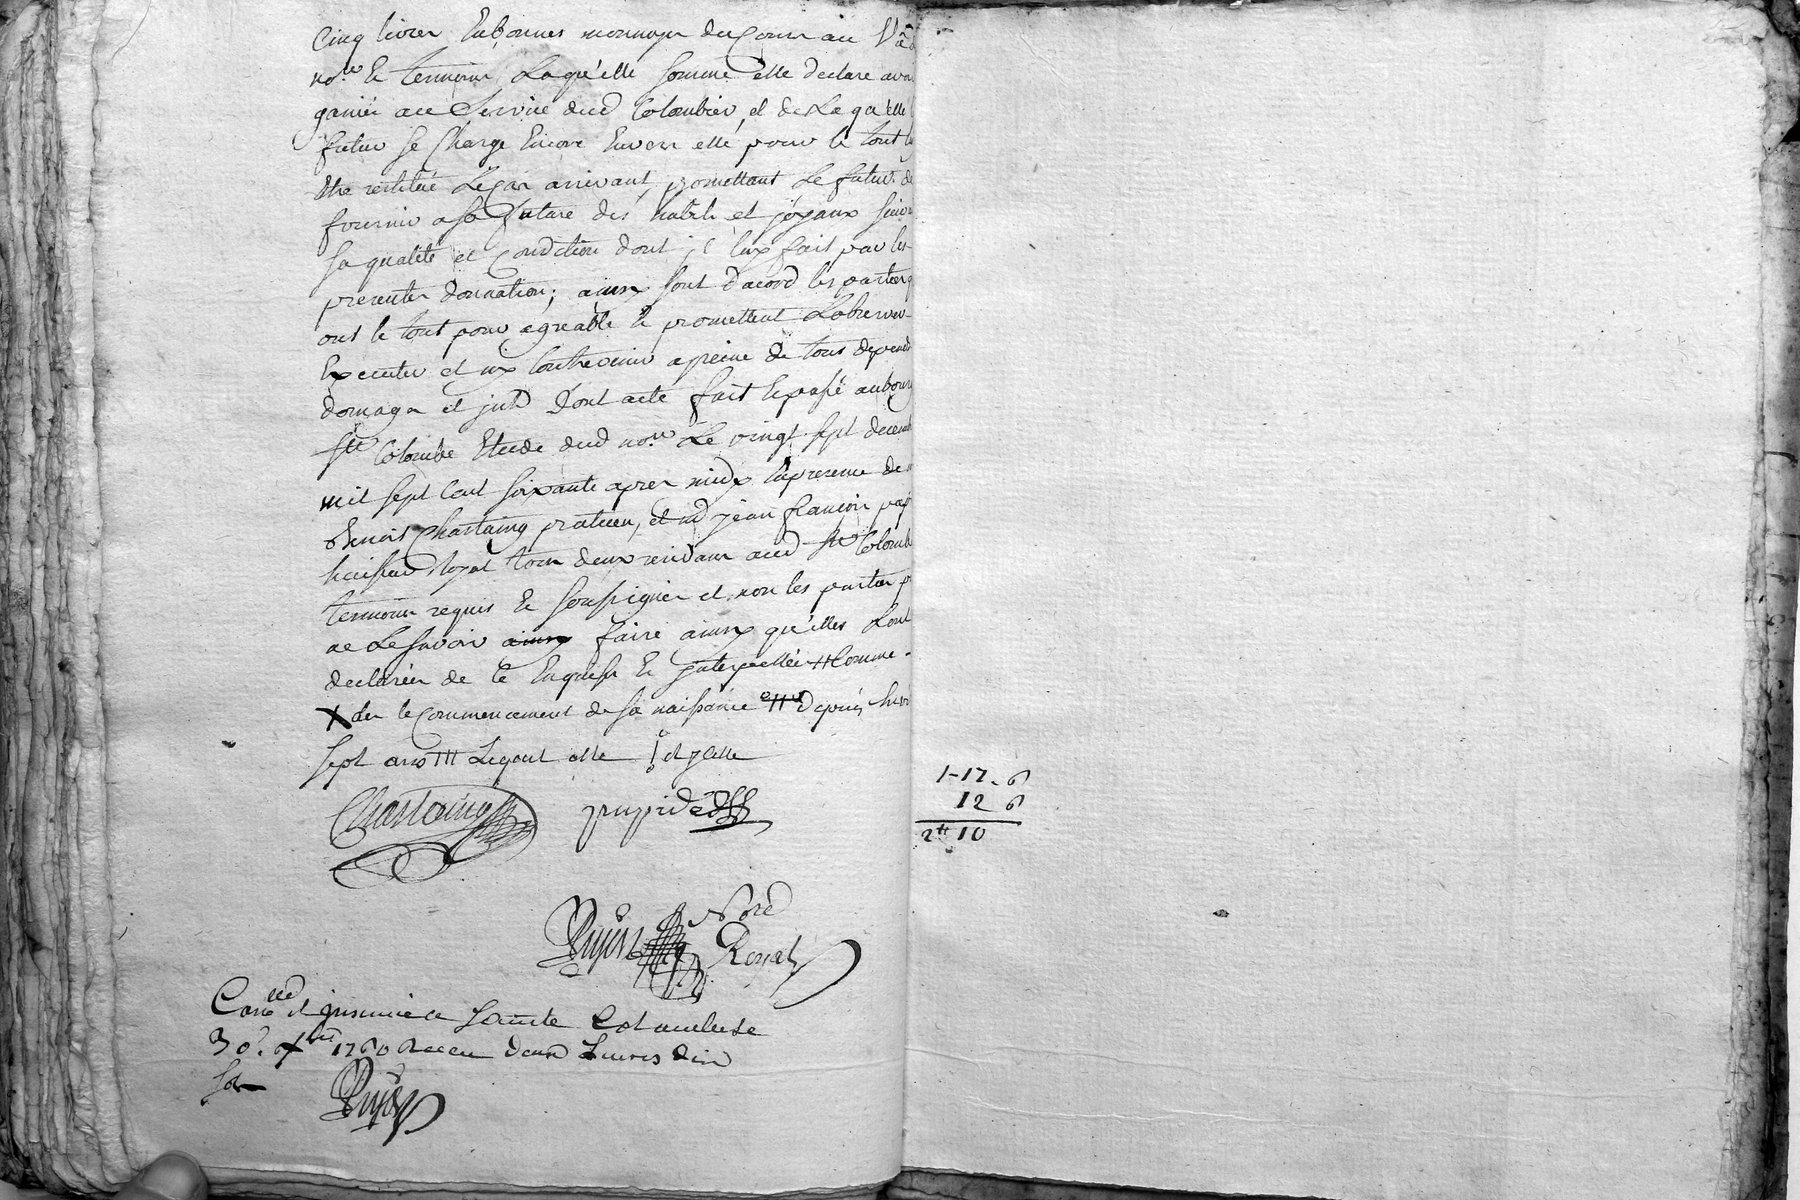 Cinq livres En bonnes monnoyes du Cours au Vû d
no.re Et temoins Laqu'elle somme elle declare avoi
ganiée au Service dud Colombier, et de Laqu'elle l
futur se Charge Encore Envers elle pour le tout lu
Etre restitué Le Cas arrivant, promettant Le futur de
fournir a sa future des habits et joyaux suiva
sa qualité et Condition dont il luy fait par les
presentes donnation; ainsy sont d'acord les parties q
ont le tout pour agreable Et promettent L'observer
Executer et ny Contrevenir a peine de tous depends
domages et jnts Dont acte fait Et passé au bourg
Ste Colombe Etude dud no.re Le vingt sept decemb
mil sept Cent soixante apres midy En presence de
Benoit Chastaing praticien, et md jean francois pap
huissier Royal tous deux residans aud Ste Colombe
temoins requis Et soussignés et non les parties p
ne Le savoir ainsy faire ainsy qu'elles L'ont
declarées de Ce Enquises Et jnterpellées # Comme
X des le Commencement de sa naissance Depuis Envir
sept ans ### Lequel elle et jcelle
Chastaing
papid
Pupier Nore
Royal
Conllé et jnsinué a Sainte Colombe le
30e Xbre 1760 Receu Deux Livres dix
sols
Pupier
1-17. 6
12 6
2tt 10